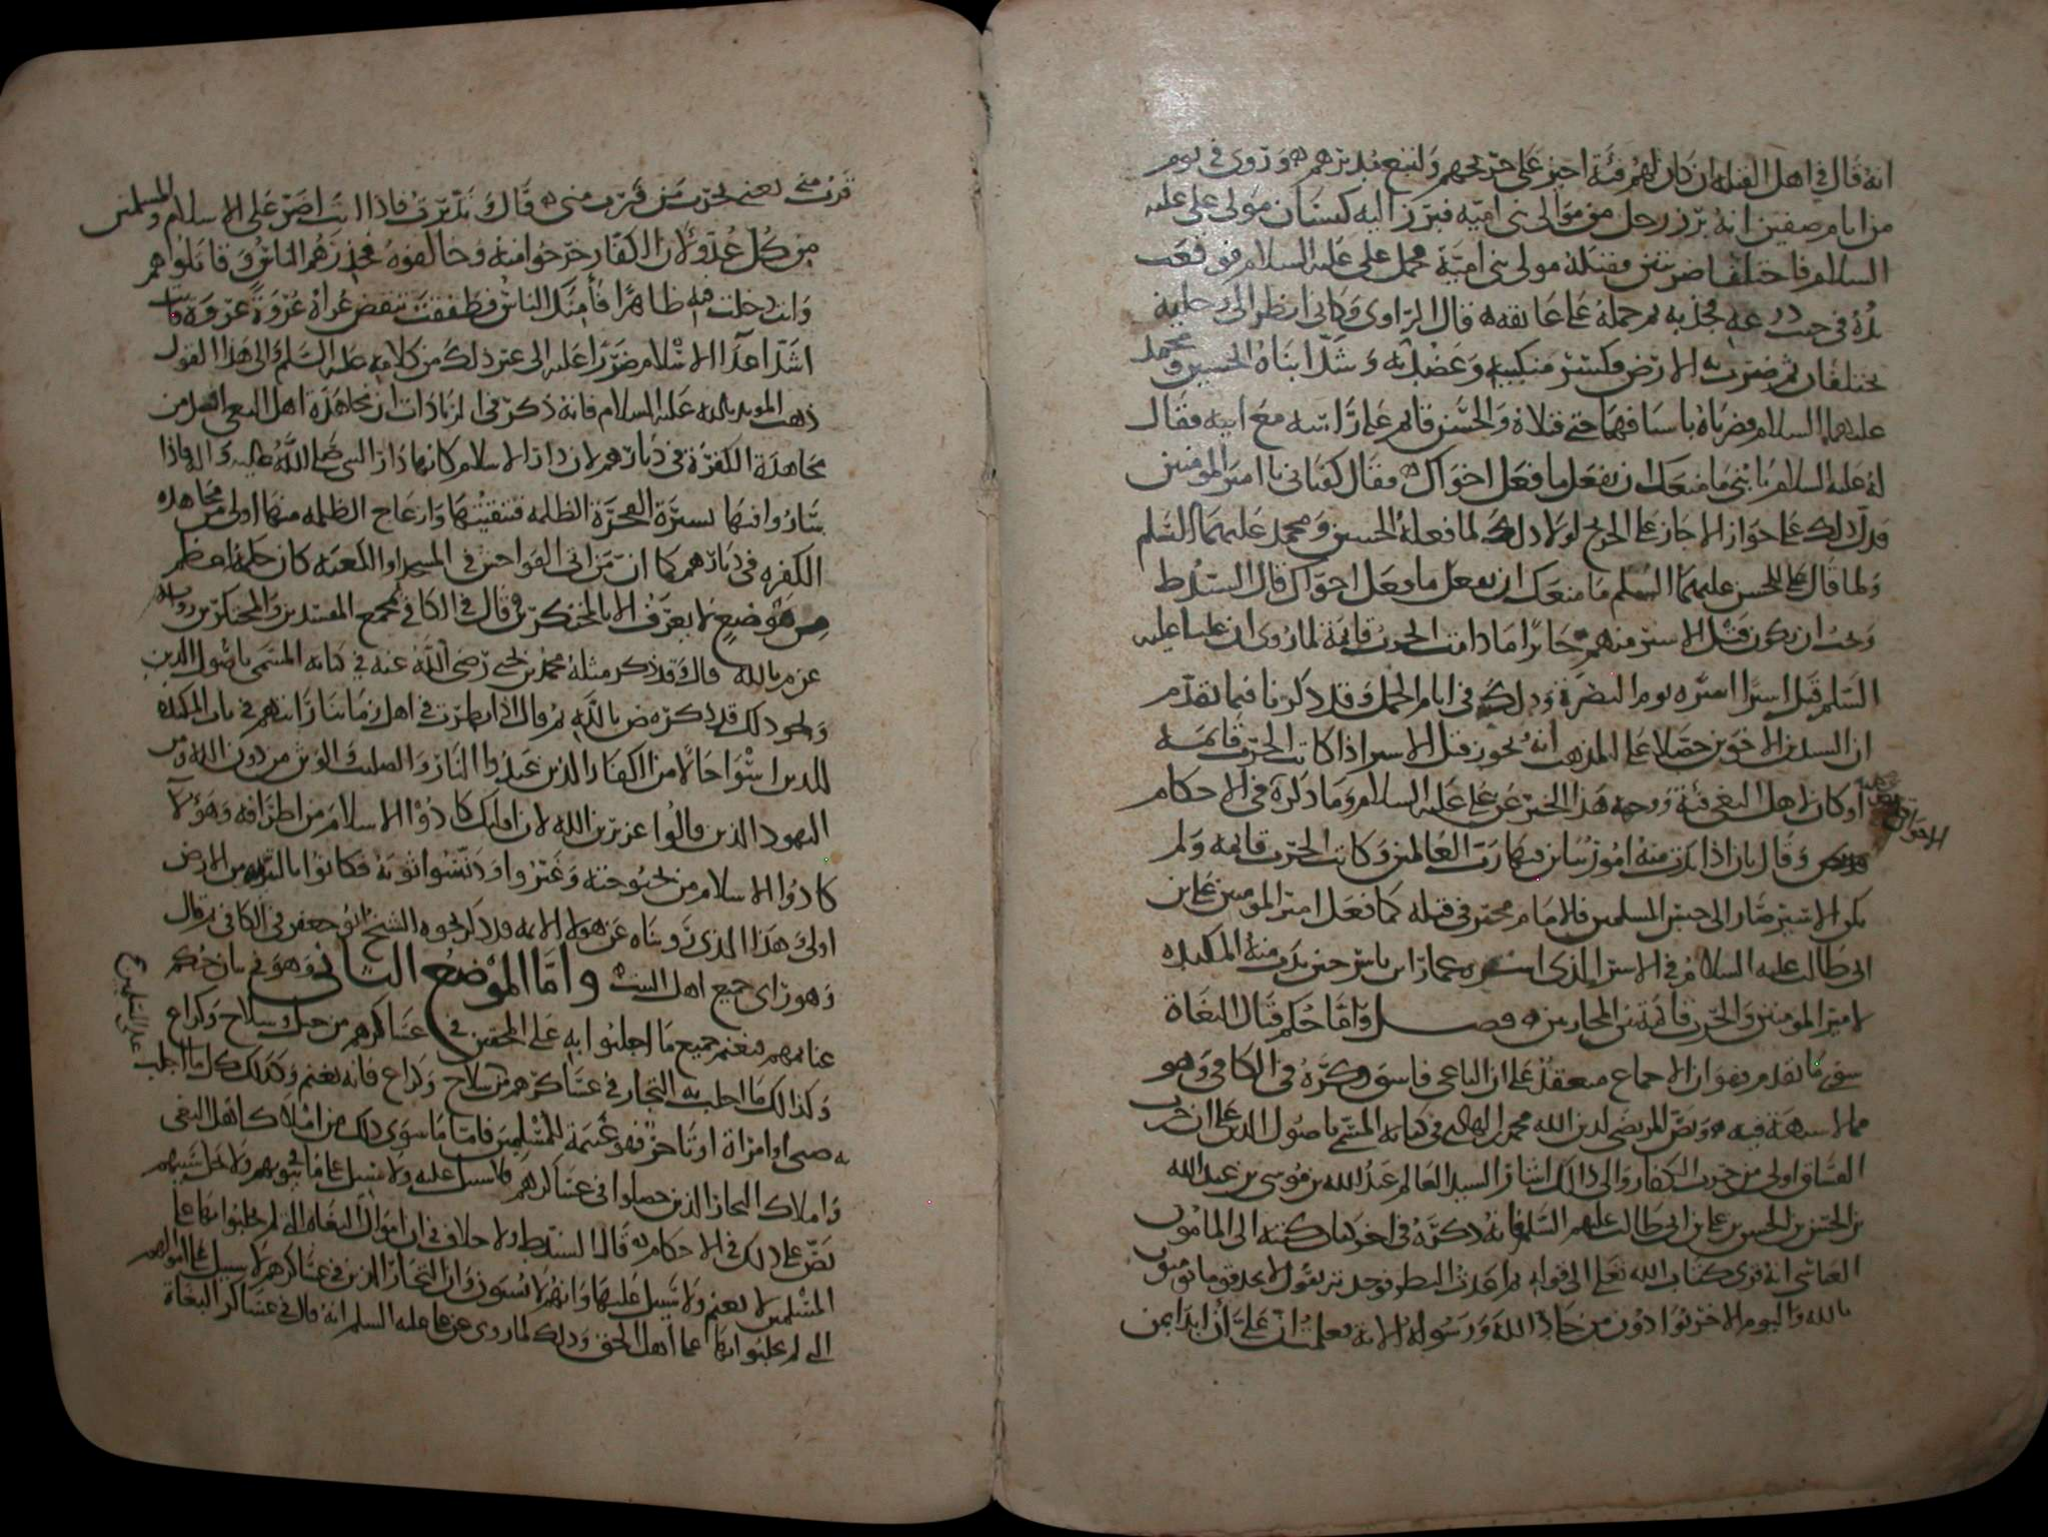 انه قال في اهل القبلة ان كان لهم فئة اجيز على جريحهم واتبع مدبرهم وروي في يوم
من ايام صفين انه برز رجل من موالي بني امية فبرز اليه كيسان مولى علي عليه
السلام فاختلفا ضربتين فقتله مولى بني امية فحمل علي عليه السلام فوقعت
يده في جيب درعه فجذبه ثم حمله على عاتقه قال الراوي وكاني انظر الى رجليه
تختلفان ثم ضرب به الارض فكسر منكبيه وعضديه وشد ابناه الحسين ومحمد
عليهما السلام فضرباه باسيافهما حتى قتلاه والحسن قائم على رابية مع ابيه فقال
له عليه السلام يا بني ما منعك ان تفعل ما فعل اخواك فقال كفياني يا امير المومنين
فدل ذلك على جواز الاجاز على الجريح لولا ذلك لما فعله الحسين ومحمد عليهما السلم
ولما قال علي للحسن عليهما السلم ما منعك ان تفعل ما فعل اخواك قال السيد ط
وجب ان يكون قتل الاسير منهم جائزا ما دامت الحرب قائمة لما روي ان عليا عليه
السلم قتل اسيرا اسره يوم البصرة وذلك في ايام الجمل وقد ذكرنا فيما تقدم
ان السيدين الاخوين حصلا على المذهب انه يجوز قتل الاسير اذا كانت الحرب قائمه
او كان لاهل البغي فئة ووجه هذا الخبر عن علي عليه السلام وما ذكره في الاحكام
وقال بان اذا بدت منه امور بان بها رب العالمين وكانت الحرب قائمه ولم
يكن الاسير صار الى حبس المسلمين فالامام مخير في قتله كما فعل امير المومنين علي بن
ابي طالب عليه السلام في الاسير الذي اسره عمار بن ياسر حين بدت منه المكيده
لامير المومنين والحرب قائمة بين المحاربين فصل واما حكم قتال البغاة
ما تقدم فهو ان الاجماع منعقد على ان الباغي فاسق ذكره في الكافي وهو
مما لا شبهة فيه ونص المرتضى لدين الله محمد بن الهادي في كتابه المسمى باصول الدين على ان حرب
الفساق اولى من حرب الكفار والى ذلك اشار السيد العالم عبد الله بن موسى بن عبد الله
بن الحسن بن الحسن بن علي بن ابي طالب عليهم السلم فانه ذكره في اخر كتاب كتبه الى المامون
العباسي انه قرى كتاب الله تعلى الى قوله ثم اعدت النظر فوجدته يقول لا تجد قوما يومنون
بالله واليوم الاخر يوادون من حاد الله ورسوله الاية فعلمت ان علي ان ابدا بمن
قرب مني يعني بحرب من قرب مني قال وتدبرت فاذا انت اضر على الاسلام والمسلمين
من كل عدو لان الكفار خرجوا منه وخالفوه فحذرهم الناس وقاتلوهم
وانت دخلت فيه ظاهرا فامنك الناس فطفقت تنقض عراه عروة عروة فانت
اشد اعدا الاسلام ضررا عليه الى غير ذلك من كلامه عليه السلم والى هذا القول
ذهب المويد بالله عليه السلام فانه ذكر في الزيادات ان مجاهدة اهل البغي افضل من
مجاهدة الكفرة في ديارهم لان دار الاسلام كانها دار النبي صلى الله عليه واله فاذا
ساروا فيها بسيرة الفجرة الظلمه فتنقيتها وازعاج الظلمه منها اولى من مجاهده
الكفره في ديارهم كما ان من اتى الفواحش في المسجد او الكعبه كان جلمه اعظم
من موضع لا يعرف الا بالخنكرين قال في الكافي مجمع المفسدين والمحنكرين
قال وقد ذكر مثله محمد بن يحيى رضي الله عنه في كتابه المسمى باصول الدين
ونحو ذلك قد ذكره ض بالله ثم قال اذا نظرت في اهل زماننا رايتهم في باب المكيده
للدين اسوا حالا من الكفار الذين عبدوا النار والصليب والوثن من دون الله ومن
اليهود الذين قالوا عزير بن الله لان اوليك كادوا الاسلام من اطرافه وهولا
كادوا الاسلام من بحبوحته وغيروا ودنسوا ثوبه فكانوا بالتطهير من الارض
اولى هذا الذي رويناه عن هولا الايمه وقد ذكر نحوه الشيخ ابو جعفر في الكافي ثم قال
وهو راي جميع اهل البيت واما الموضع الثاني وهو في بيان حكم
غنائمهم فيغنم جميع ما اجلبوا به على المحقين في عساكرهم من خيل وسلاح وكراع
وكذلك ما اجلبت به التجار في عساكرهم من سلاح وكراع فانه يغنم وكذلك كل ما اجلب
به صبي او امراة او تاجر فهو غنيمة للمسلمين فاما ما سوى ذلك من املاك اهل البغي
واملاك التجار الذين حصلوا في عساكرهم فلا سبيل عليه ولا سبيل على ما في بيوتهم ولا يحل سبيهم
نص على ذلك في الاحكام قال السيد ط ولا خلاف في ان اموال البغاة التي لم يجلبوا بها على
المسلمين لا تغنم ولا سبيل عليها وانهم لا يسبون وان التجار الذين في عساكرهم لا سبيل على اموالهم
التي لم يجلبوا بها على اهل الحق وذلك لما روي عن علي عليه السلم انه قال في عساكر البغاة